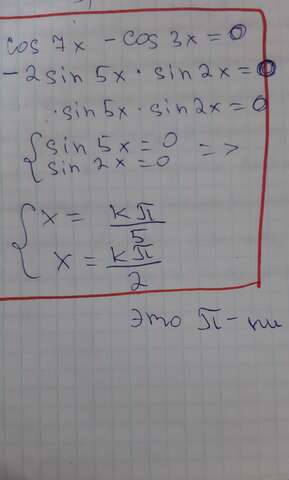 cos 7x - cos 3x = 0
-2 sin 5x · sin 2x = 0
· sin 5x · sin 2x = 0
{ sin 5x = 0
sin 2x = 0 =>
{ x = kπ/5
x = kπ/2
Это π - пи